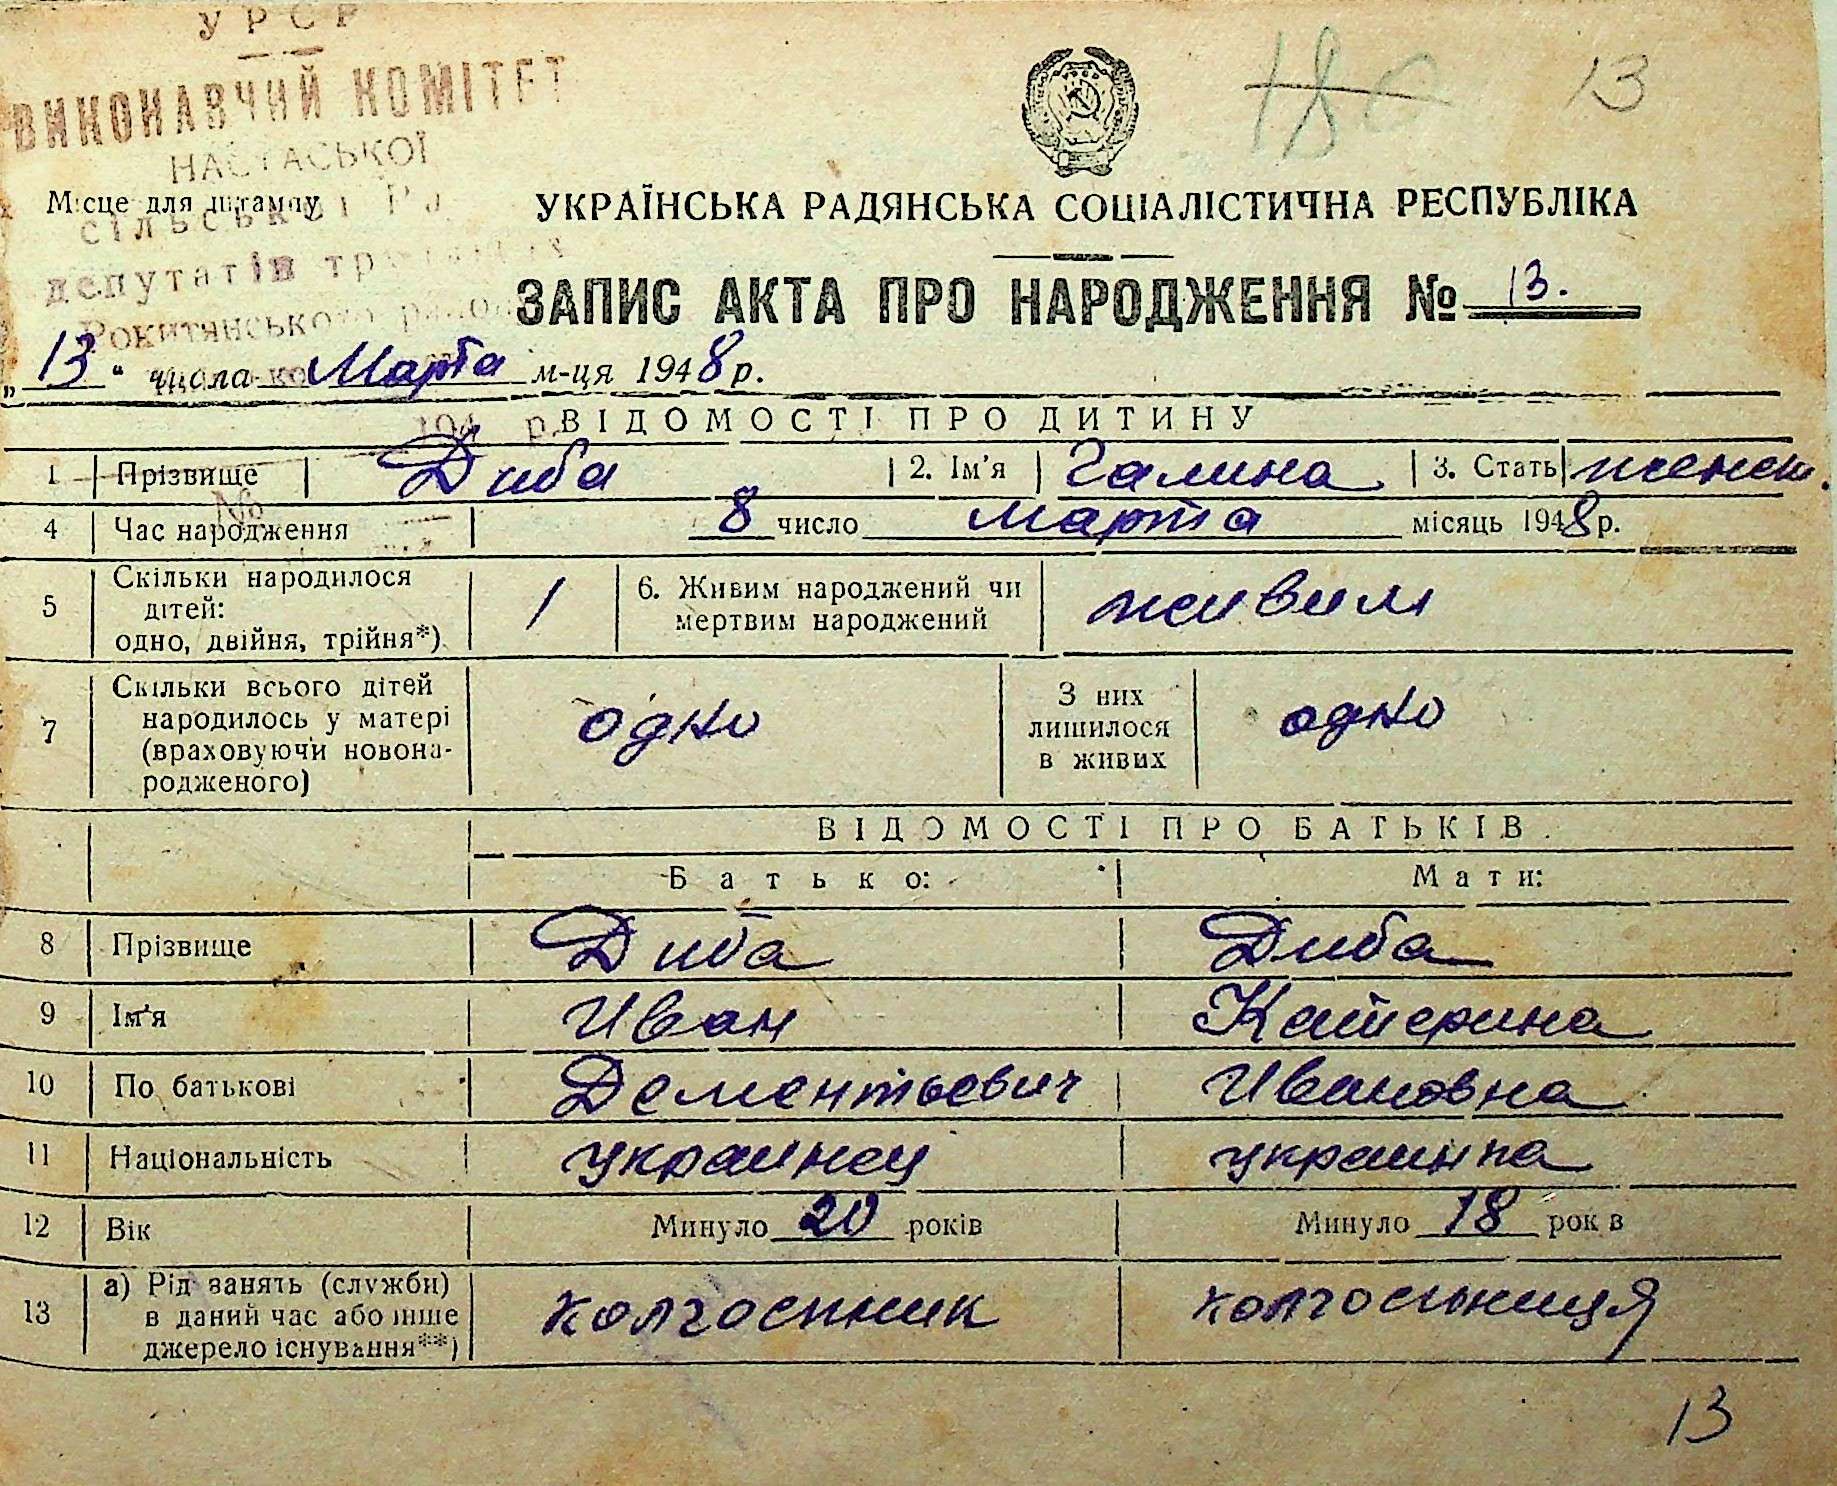 УРСР
ВИКОНАВЧИЙ КОМІТЕТ
НАСТАСЬКОЇ
сільської
депутатів
Рокитянського
Місце для штампу
180 13
УКРАЇНСЬКА РАДЯНСЬКА СОЦІАЛІСТИЧНА РЕСПУБЛІКА
ЗАПИС АКТА ПРО НАРОДЖЕННЯ № 13.
„13“ числа Марта м-ця 1948 р.
194 р.
ВІДОМОСТІ ПРО ДИТИНУ
1 Прізвище Диба 2. Ім'я Галина 3. Стать женск.
№
4 Час народження 8 число марта місяць 1948 р.
5 Скільки народилося дітей: одно, двійня, трійня*) 1 6. Живим народжений чи мертвим народжений живим
7 Скільки всього дітей народилось у матері (враховуючи новонародженого) одно З них лишилося в живих одно
ВІДОМОСТІ ПРО БАТЬКІВ
Батько: Мати:
8 Прізвище Диба Диба
9 Ім'я Иван Катерина
10 По батькові Дементьевич Ивановна
11 Національність украинец украинка
12 Вік Минуло 20 років Минуло 18 років
13 а) Рід занять (служби) в даний час або інше джерело існування**) колгоспник колгоспниця
13